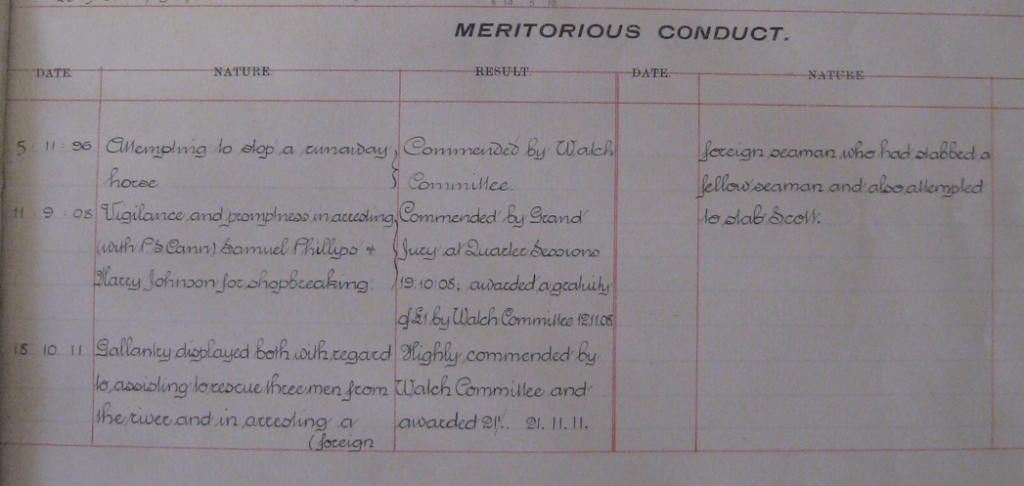 MERITORIOUS CONDUCT.
DATE. NATURE. RESULT. DATE. NATURE
5 : 11 : 96 Attempting to stop a runaway Commended by Watch
horse Committee.
11 : 9 : 08 Vigilance and promptness in arresting Commended by Grand
(with PS Cann) Samuel Phillips + Jury at Quarter Sessions
Harry Johnson for shopbreaking. 19:10:08; awarded a gratuity
of £1 by Watch Committee 12.11.08
18 10 11 Gallantry displayed both with regard Highly commended by
to assisting to rescue three men from Watch Committee and
the river and in arresting a awarded 21. 11. 11.
(foreign
foreign seaman who had stabbed a
fellow seaman and also attempted
to stab Scott.